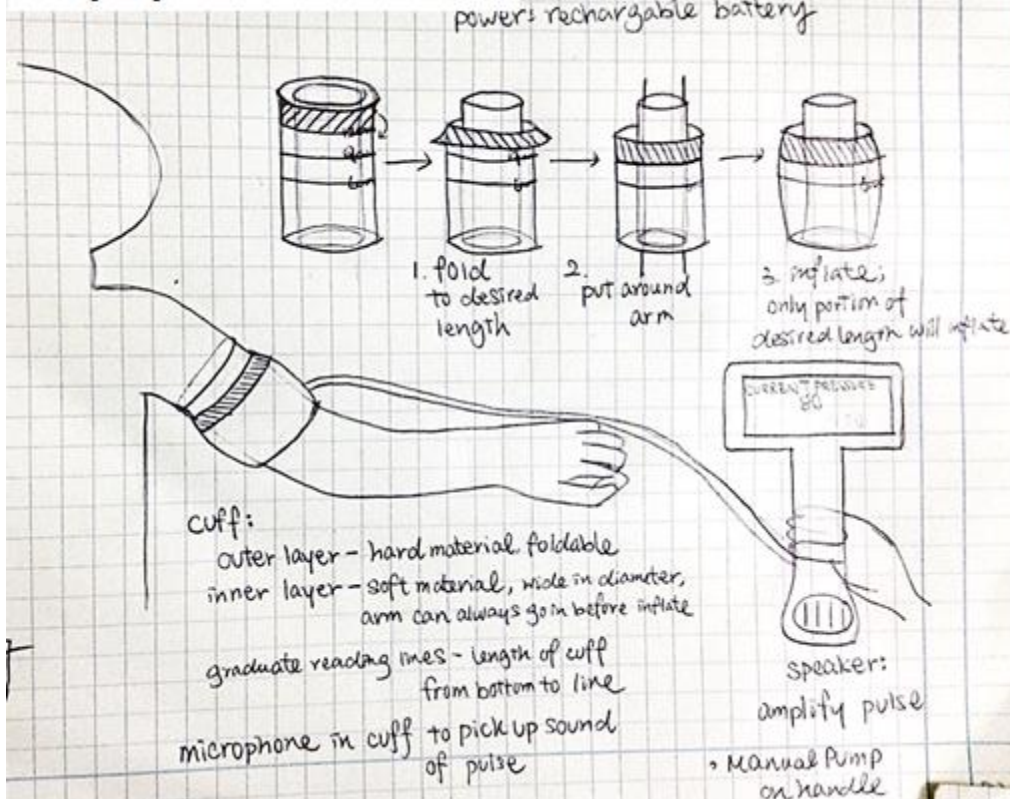 power: rechargable battery
1. fold
to desired
length
2.
put around
arm
3. inflate;
only portion of
desired length will inflate
CURRENT PRESSURE
80
cuff:
outer layer - hard material, foldable
inner layer - soft material, wide in diameter,
arm can always go in before inflate
graduate reading lines - length of cuff
from bottom to line
microphone in cuff to pick up sound
of pulse
speaker:
amplify pulse
Manual Pump
on handle